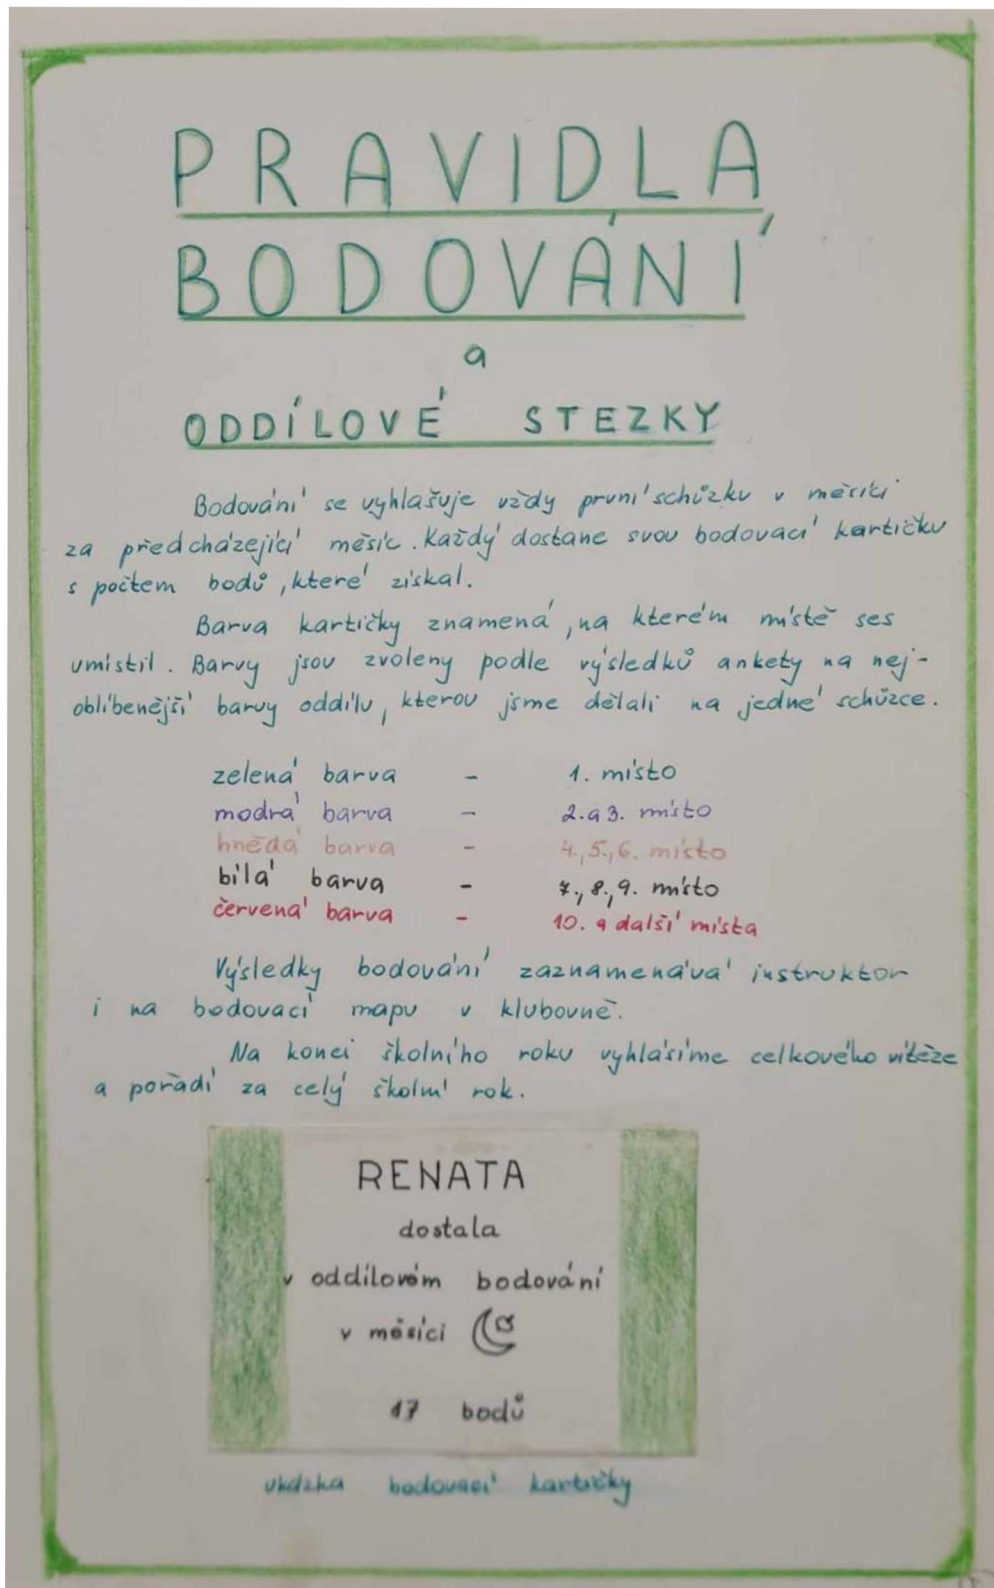 PRAVIDLA
BODOVÁNÍ
a
ODDÍLOVÉ STEZKY
Bodování se vyhlašuje vždy první schůzku v měsíci
za předcházející měsíc. Každý dostane svou bodovací kartičku
s počtem bodů, které získal.
Barva kartičky znamená, na kterém místě ses
umístil. Barvy jsou zvoleny podle výsledků ankety na nej-
oblíbenější barvy oddílu, kterou jsme dělali na jedné schůzce.
zelená barva - 1. místo
modrá barva - 2. a 3. místo
hnědá barva - 4., 5., 6. místo
bílá barva - 7., 8., 9. místo
červená barva - 10. a další místa
Výsledky bodování zaznamenává instruktor
i na bodovací mapu v klubovně.
Na konci školního roku vyhlásíme celkového vítěze
a pořadí za celý školní rok.
RENATA
dostala
v oddílovém bodování
v měsíci
17 bodů
ukázka bodovací kartičky